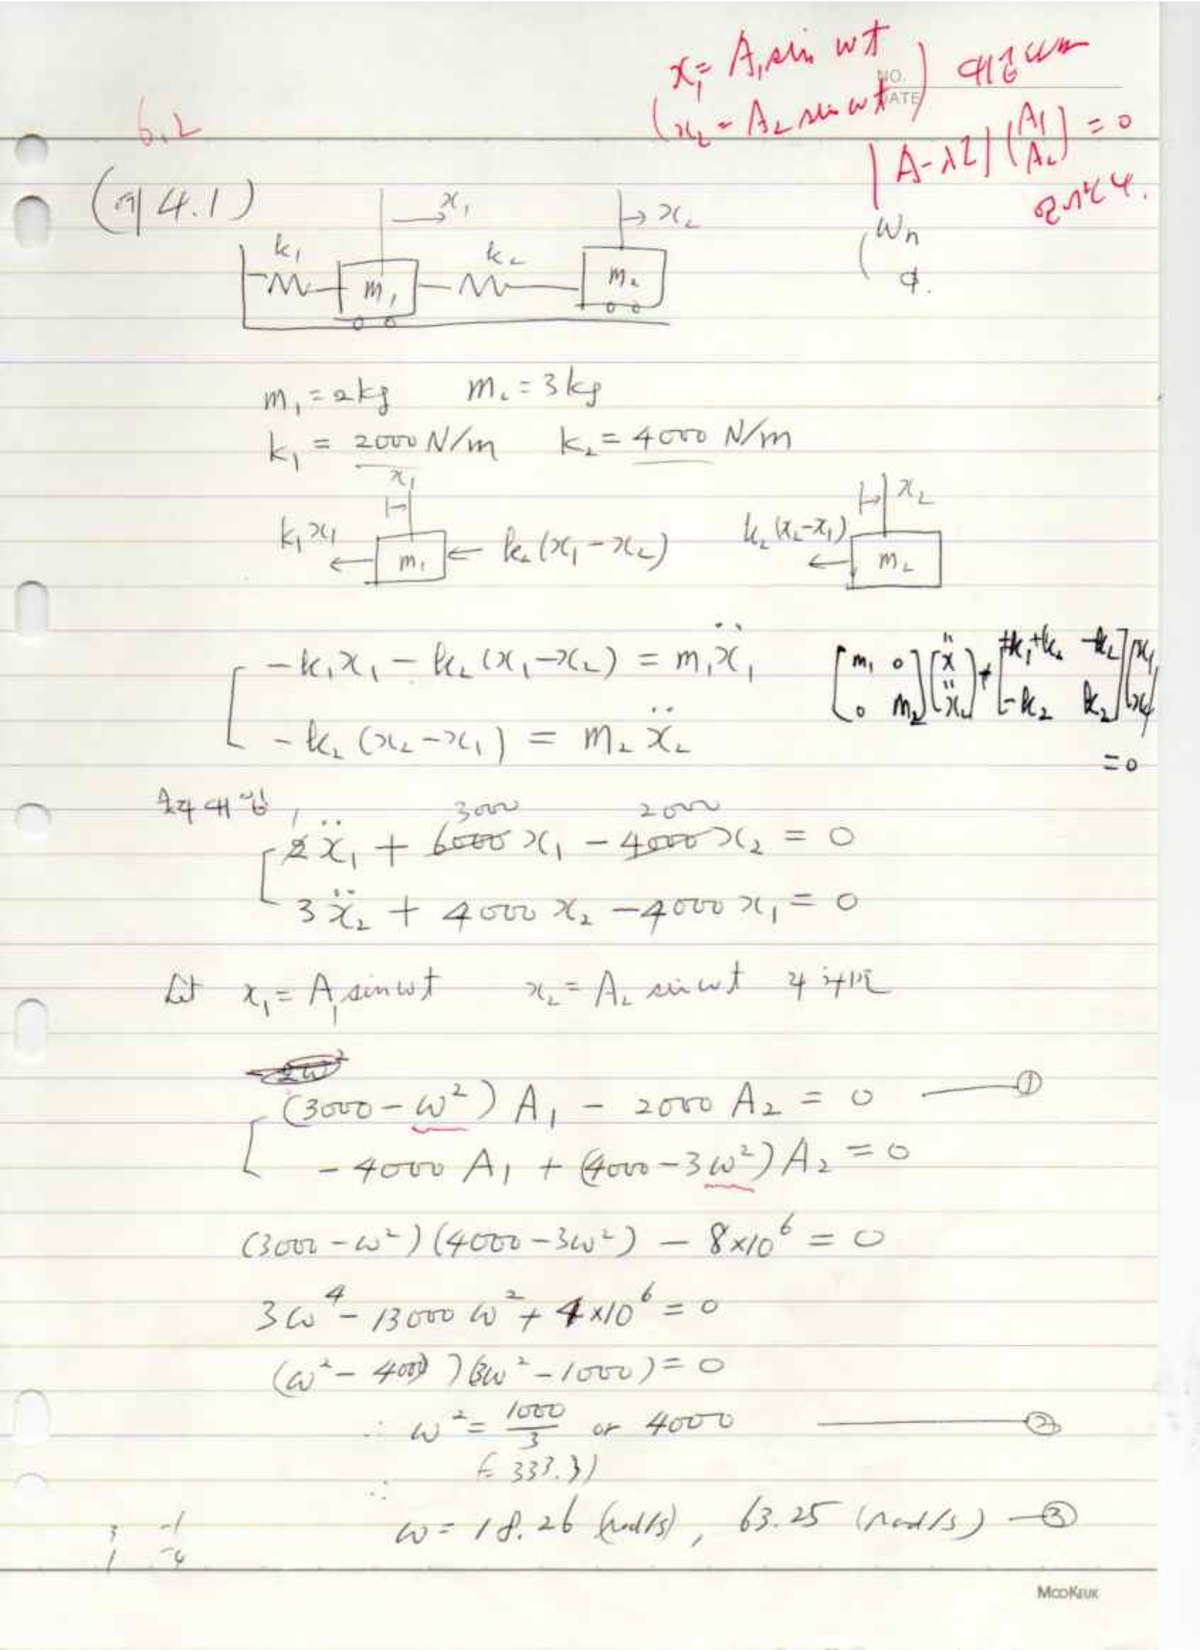 x₁ = A₁ sin ωt
( x₂ = A₂ sin ωt )
NO.
DATE
|A-λI| (A₁ A₂) = 0
6.2
(예 4.1)
ωn
ϕ.
x₁ x₂
k₁ m₁ k₂ m₂
m₁ = 2kg m₂ = 3kg
k₁ = 2000 N/m k₂ = 4000 N/m
x₁ x₂
k₁x₁ m₁ k₂(x₁-x₂) k₂(x₂-x₁) m₂
-k₁x₁ - k₂(x₁-x₂) = m₁ẍ₁
-k₂(x₂-x₁) = m₂ẍ₂
[m₁ 0; 0 m₂][ẍ₁; ẍ₂] + [+k₁+k₂ -k₂; -k₂ k₂][x₁; x₂]
= 0
3000 2000
2ẍ₁ + 6000x₁ - 4000x₂ = 0
3ẍ₂ + 4000x₂ - 4000x₁ = 0
Let x₁ = A₁ sinωt x₂ = A₂ sinωt
-2ω²
(3000-ω²)A₁ - 2000A₂ = 0 ①
-4000A₁ + (4000-3ω²)A₂ = 0
(3000-ω²)(4000-3ω²) - 8×10⁶ = 0
3ω⁴ - 13000ω² + 4×10⁶ = 0
(ω²-4000)(3ω²-1000) = 0
∴ ω² = 1000/3 or 4000 ②
(= 333.3)
∴
ω = 18.26 (rad/s), 63.25 (rad/s) ③
3 -1
1 -4
MOOKEUK